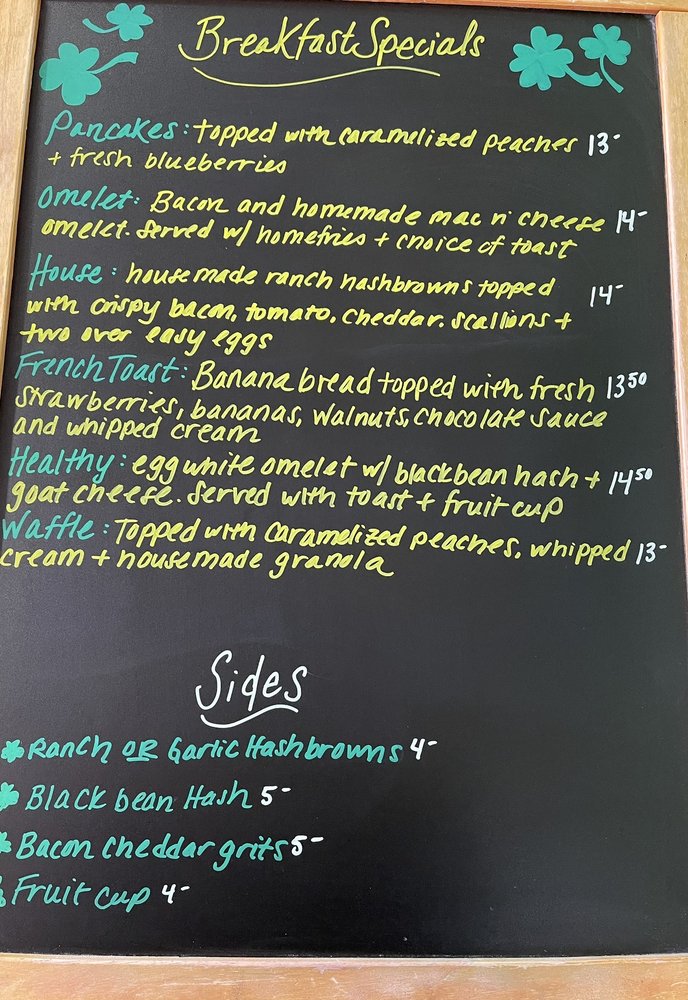 Breakfast Specials
Pancakes: topped with caramelized peaches 13-
+ fresh blueberries
Omelet: Bacon and homemade mac n' cheese 14-
omelet. Served w/ homefries + choice of toast
House: housemade ranch hashbrowns topped 14-
with crispy bacon, tomato, cheddar, scallions +
two over easy eggs
French Toast: Banana bread topped with fresh 13 50
strawberries, bananas, walnuts, chocolate sauce
and whipped cream
Healthy: egg white omelet w/ blackbean hash + 14 50
goat cheese. Served with toast + fruit cup
Waffle: Topped with caramelized peaches, whipped 13-
cream + housemade granola
Sides
Ranch OR Garlic Hashbrowns 4-
Black bean Hash 5-
Bacon cheddar grits 5-
Fruit cup 4-